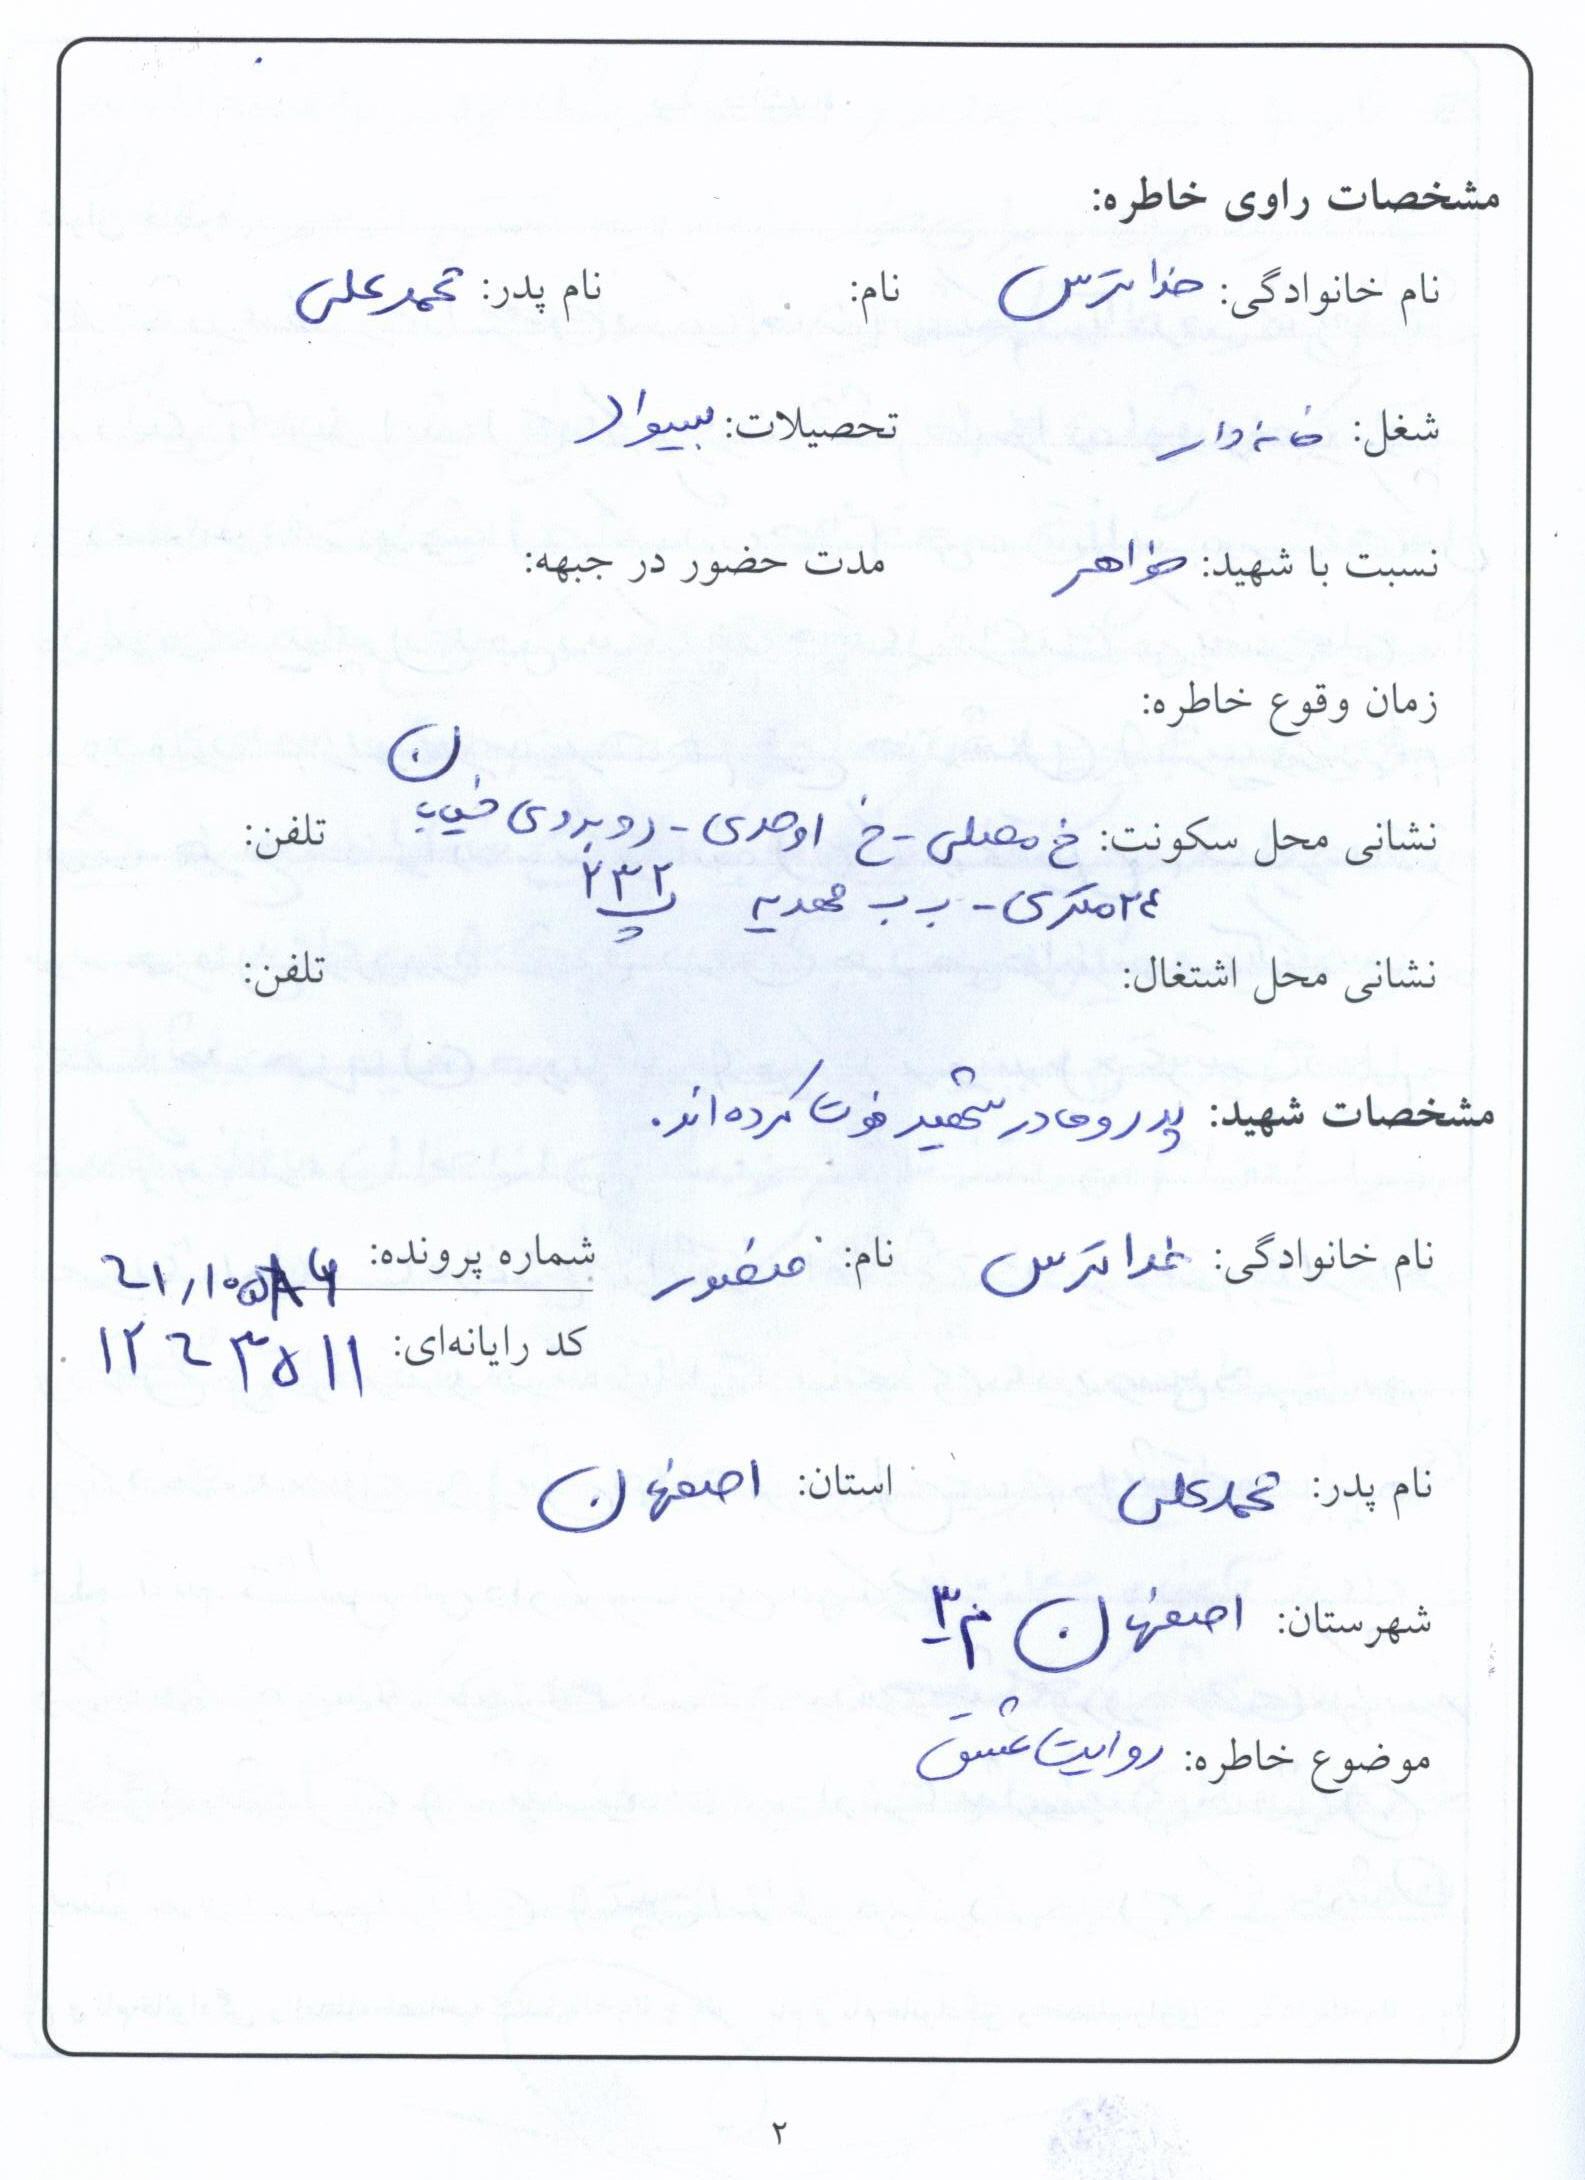 مشخصات راوی خاطره:
نام خانوادگی: خداترس نام: نام پدر: محمدعلی
شغل: خانه دار تحصیلات: بیسواد
نسبت با شهید: خواهر مدت حضور در جبهه:
زمان وقوع خاطره:
نشانی محل سکونت: خ مصلی - خ اوحدی - روبروی خیابان تلفن:
۲۴ متری - ب ب مهدیه پ ۲۳۲
نشانی محل اشتغال: تلفن:
مشخصات شهید: پدر و مادر شهید فوت کرده اند.
نام خانوادگی: خداترس نام: منصور شماره پرونده:
کد رایانه‌ای: ۱۲۶۳۵۱۱
نام پدر: محمدعلی استان: اصفهان
شهرستان: اصفهان م ۳
موضوع خاطره: روایت عشق
۲